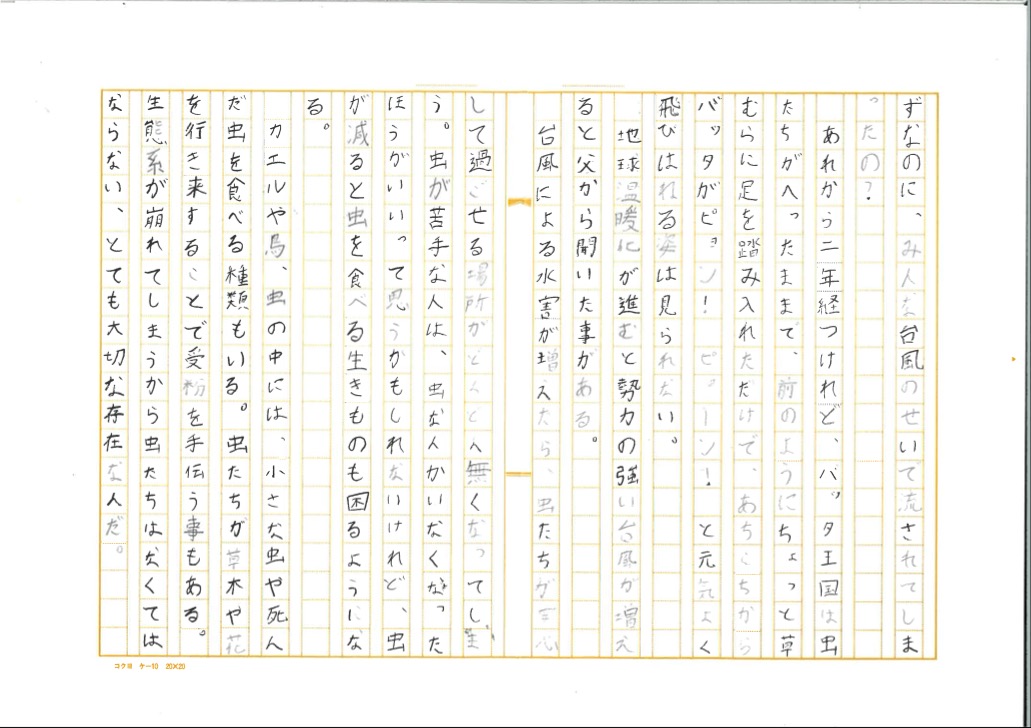 ずなのに、みんな台風のせいで流されてしま
ったの？
あれから二年経つけれど、バッタ王国は虫
たちがへったままで、前のようにちょっと草
むらに足を踏み入れただけで、あちこちから
バッタがピョン！ピョーン！と元気よく
飛びはねる姿は見られない。
地球温暖化が進むと勢力の強い台風が増え
ると父から聞いた事がある。
台風による水害が増えたら、虫たちが安心
して過ごせる場所がどんどん無くなってしま
う。虫が苦手な人は、虫なんかいなくなった
ほうがいいって思うかもしれないけれど、虫
が減ると虫を食べる生きものも困るようにな
る。
カエルや鳥、虫の中には、小さな虫や死ん
だ虫を食べる種類もいる。虫たちが草木や花
を行き来することで受粉を手伝う事もある。
生態系が崩れてしまうから虫たちはなくては
ならない、とても大切な存在なんだ。
コクヨ ケー10 20×20